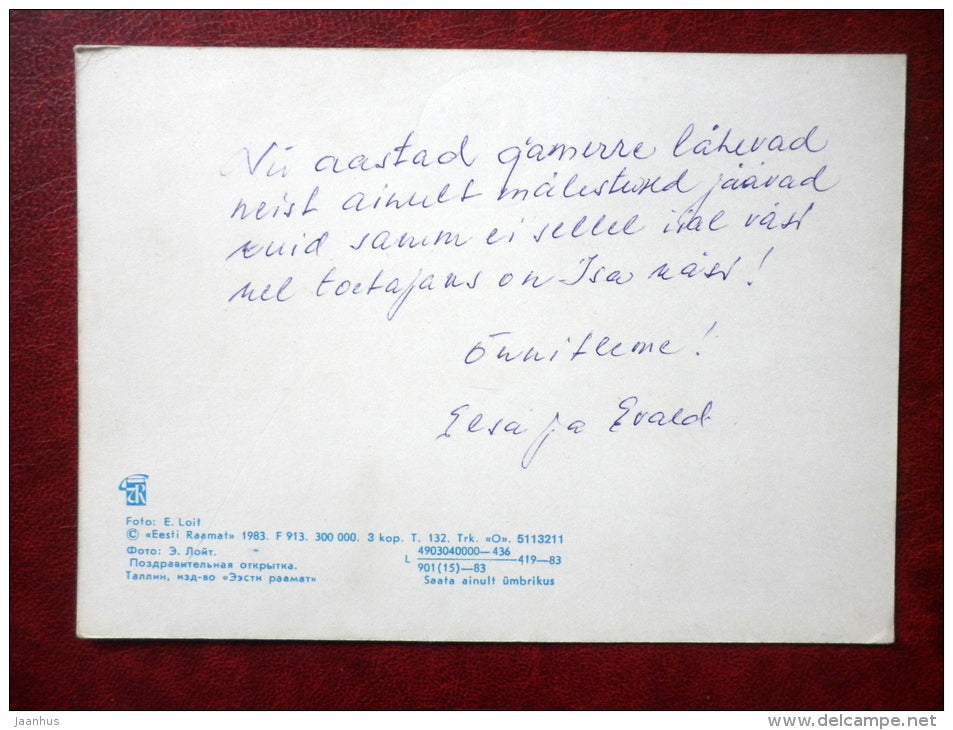 Nii aastad ajamerre lähevad
neist ainult mälestused jäävad
kuid samm ei sellel iial väsi
kel toetajaks on Isa käsi!
Õnnitleme!
Elsa ja Evald
Foto: E. Loit
© «Eesti Raamat» 1983. F 913. 300 000. 3 kop. T. 132. Trk. «O». 5113211
Фото: Э. Лойт.
Поздравительная открытка.
Таллин, изд-во «Ээсти раамат»
L 4903040000—436
901(15)—83
419—83
Saata ainult ümbrikus
jaanhus
www.delcampe.net